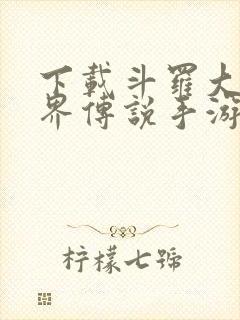 下載斗羅大
界傳說手游
柠檬七號